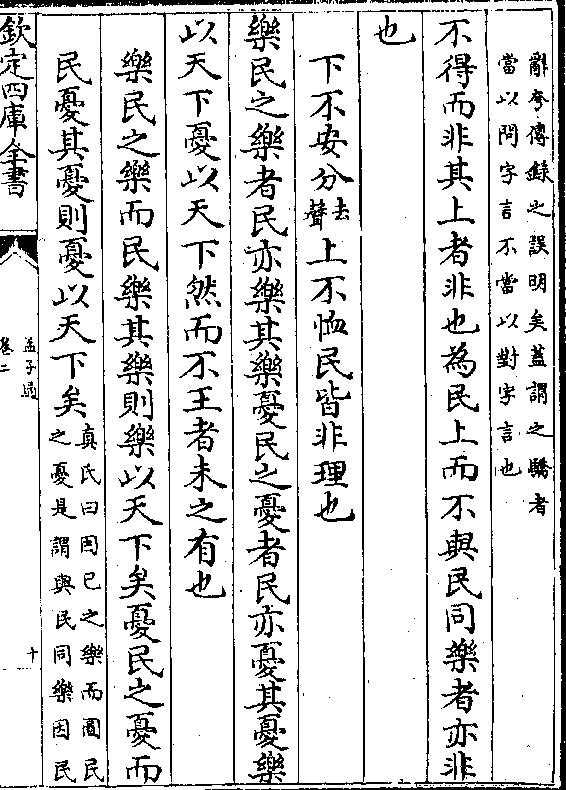 辭參傳錄之誤明矣蓋謂之驕者
當以問字言不當以對字言也
不得而非其上者非也為民上而不與民同樂者亦非
也
下不安分去聲上不恤民皆非理也
樂民之樂者民亦樂其樂憂民之憂者民亦憂其憂樂
以天下憂以天下然而不王者未之有也
樂民之樂而民樂其樂則樂以天下矣憂民之憂而
民憂其憂則憂以天下矣真氏曰因已之樂而圖民
之憂是謂與民同樂因民
欽定四庫全書
孟子通
卷二
十